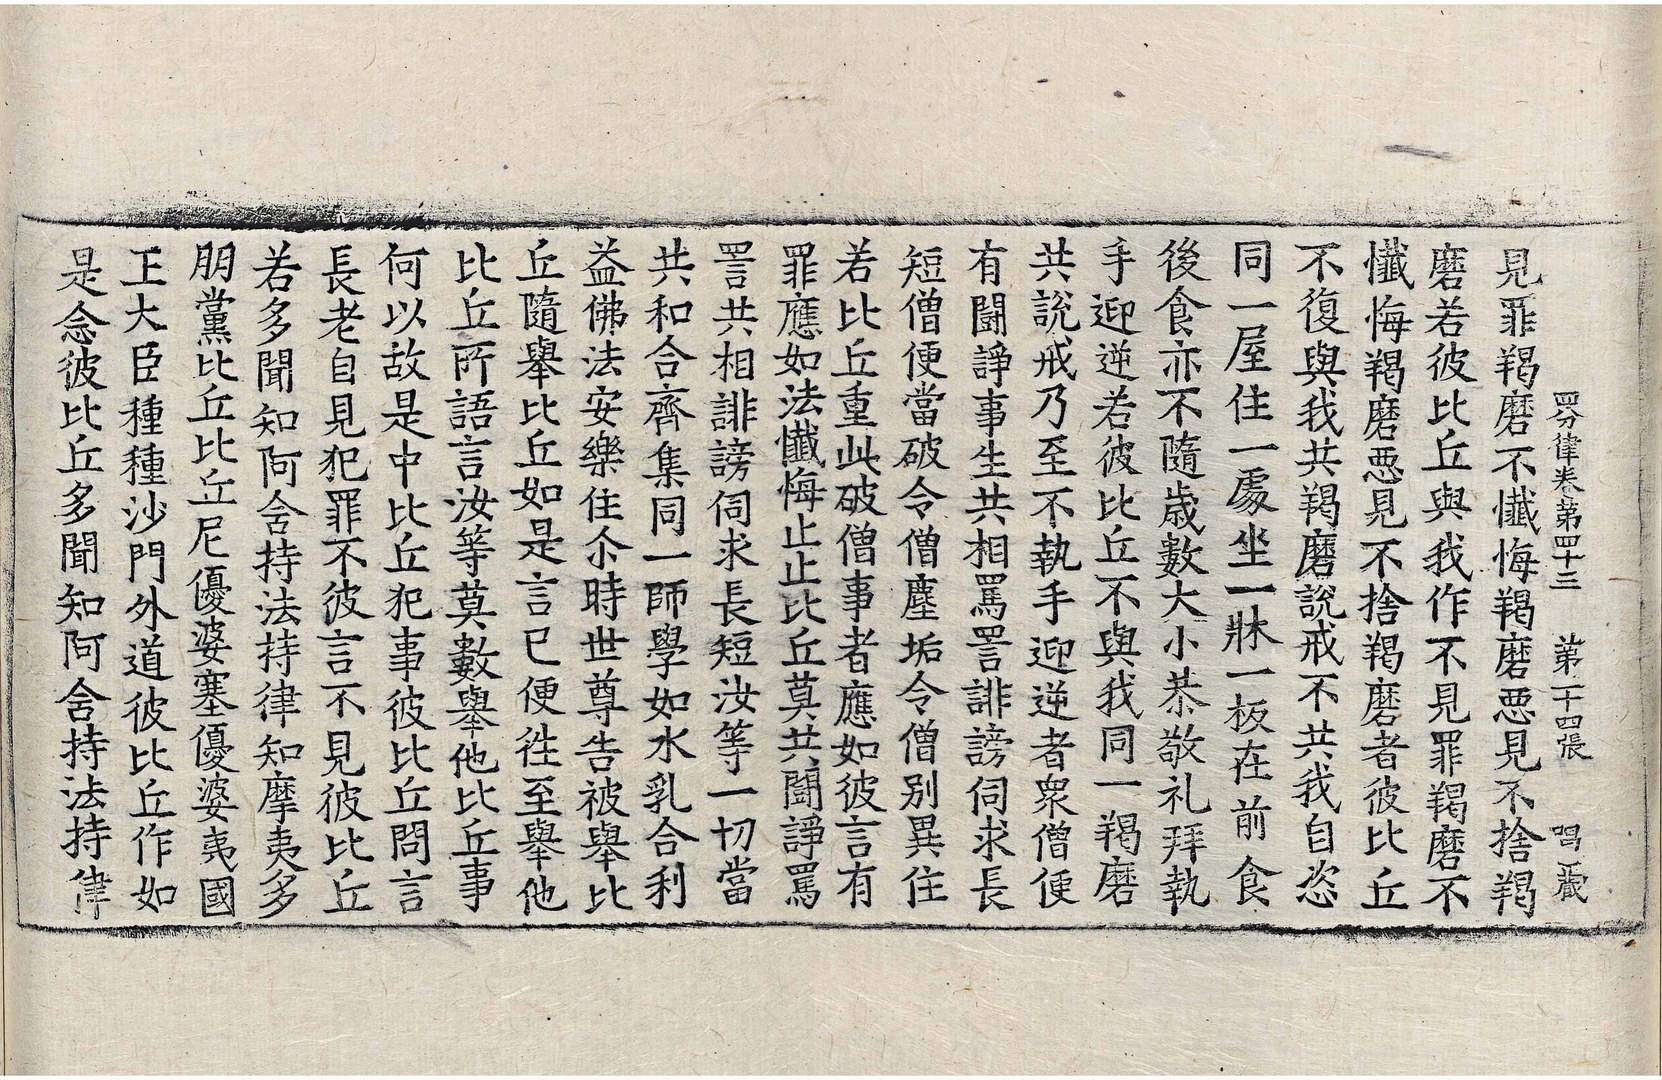 四分律卷第四十三　第二十四張　唱藏
見罪羯磨不懺悔羯磨惡見不捨羯
磨若彼比丘與我作不見罪羯磨不
懺悔羯磨惡見不捨羯磨者彼比丘
不復與我共羯磨說戒不共我自恣
同一屋住一處坐一牀一板在前食
後食亦不隨歲數大小恭敬礼拜執
手迎逆若彼比丘不與我同一羯磨
共說戒乃至不執手迎逆者衆僧便
有鬪諍事生共相罵詈誹謗伺求長
短僧便當破令僧塵垢令僧別異住
若比丘重此破僧事者應如彼言有
罪應如法懺悔止止比丘莫共鬪諍罵
詈共相誹謗伺求長短汝等一切當
共和合齊集同一師學如水乳合利
益佛法安樂住尒時世尊告被舉比
丘隨舉比丘如是言已便往至舉他
比丘所語言汝等莫數數舉他比丘事
何以故是中比丘犯事彼比丘問言
長老自見犯罪不彼言不見彼比丘
若多聞知阿含持法持律知摩夷多
朋黨比丘比丘尼優婆塞優婆夷國
王大臣種種沙門外道彼比丘作如
是念彼比丘多聞知阿含持法持律